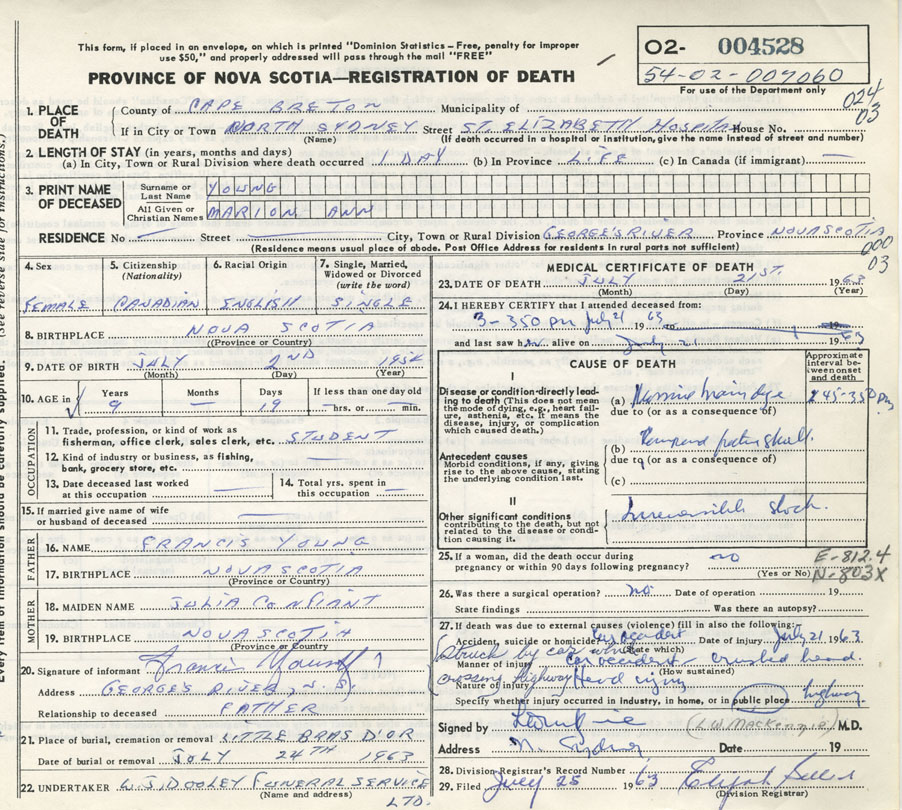 This form, if placed in an envelope, on which is printed "Dominion Statistics – Free, penalty for improper
use $50," and properly addressed will pass through the mail "FREE"
PROVINCE OF NOVA SCOTIA—REGISTRATION OF DEATH
02- 004528
54-02-009060
For use of the Department only
024
03
1. PLACE OF DEATH
County of CAPE BRETON Municipality of
If in City or Town NORTH SYDNEY Street ST. ELIZABETH HOSPITAL House No.
(Name) (If death occurred in a hospital or institution, give the name instead of street and number)
2. LENGTH OF STAY (in years, months and days)
(a) In City, Town or Rural Division where death occurred 1 DAY (b) In Province LIFE (c) In Canada (if immigrant) —
3. PRINT NAME OF DECEASED
Surname or Last Name YOUNG
All Given or Christian Names MARION ANN
RESIDENCE No — Street — City, Town or Rural Division GEORGE'S RIVER Province NOVA SCOTIA
(Residence means usual place of abode. Post Office Address for residents in rural parts not sufficient)
000
03
4. Sex FEMALE
5. Citizenship (Nationality) CANADIAN
6. Racial Origin ENGLISH
7. Single, Married, Widowed or Divorced (write the word) SINGLE
8. BIRTHPLACE NOVA SCOTIA
(Province or Country)
9. DATE OF BIRTH JULY 2ND 1954
(Month) (Day) (Year)
10. AGE in Years 9 Months — Days 19 If less than one day old hrs. or min.
OCCUPATION
11. Trade, profession, or kind of work as fisherman, office clerk, sales clerk, etc. STUDENT
12. Kind of industry or business, as fishing, bank, grocery store, etc. —
13. Date deceased last worked at this occupation —
14. Total yrs. spent in this occupation —
15. If married give name of wife or husband of deceased —
FATHER
16. NAME FRANCIS YOUNG
17. BIRTHPLACE NOVA SCOTIA
(Province or Country)
MOTHER
18. MAIDEN NAME JULIA CONFIANT
19. BIRTHPLACE NOVA SCOTIA
(Province or Country)
20. Signature of informant Francis Young
Address GEORGE'S RIVER, N.S.
Relationship to deceased FATHER
21. Place of burial, cremation or removal LITTLE BRAS D'OR
Date of burial or removal JULY 24TH 1963
22. UNDERTAKER W.J. DOOLEY FUNERAL SERVICE
(Name and address) LTD.
MEDICAL CERTIFICATE OF DEATH
23. DATE OF DEATH JULY 21ST. 1963
(Month) (Day) (Year)
24. I HEREBY CERTIFY that I attended deceased from:
3-350 pm July 21 1963 to 19
and last saw her alive on July 21 1963
CAUSE OF DEATH
Approximate interval between onset and death
I
Disease or condition directly leading to death (This does not mean the mode of dying, e.g., heart failure, asthenia, etc. It means the disease, injury, or complication which caused death.)
(a)
due to (or as a consequence of)
Antecedent causes
Morbid conditions, if any, giving rise to the above cause, stating the underlying condition last.
(b) skull.
due to (or as a consequence of)
(c)
II
Other significant conditions contributing to the death, but not related to the disease or condition causing it.
Irreversible shock.
25. If a woman, did the death occur during pregnancy or within 90 days following pregnancy? no
(Yes or No)
E-812.4
N-803X
26. Was there a surgical operation? no Date of operation 19
State findings Was there an autopsy?
27. If death was due to external causes (violence) fill in also the following:
Accident, suicide or homicide? Car accident Date of injury July 21 1963
(State which)
Struck by car when crossing highway
Manner of injury car accident - crushed head.
(How sustained)
Nature of injury Head injury
Specify whether injury occurred in industry, in home, or in public place highway
Signed by (L.W. MacKenzie) M.D.
Address N. Sydney Date 19
28. Division Registrar's Record Number
29. Filed July 25 1963
(Division Registrar)